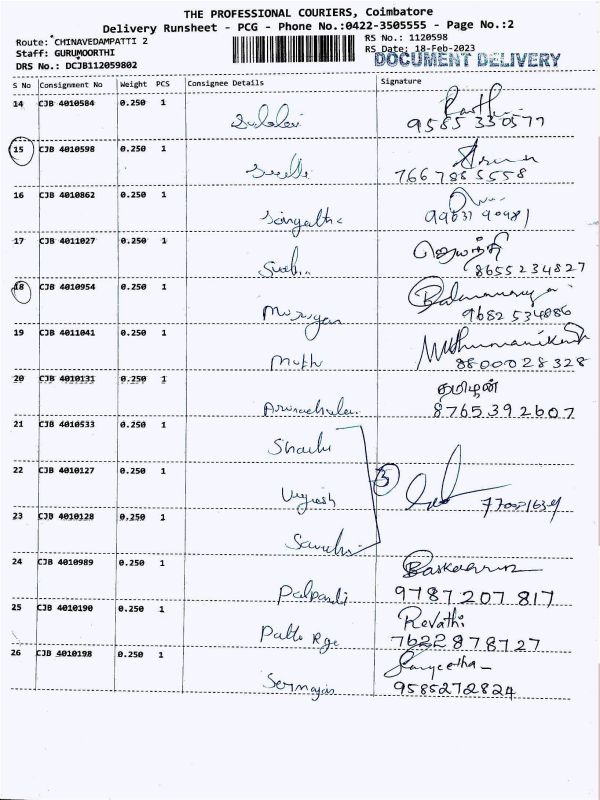 THE PROFESSIONAL COURIERS, Coimbatore
Delivery Runsheet - PCG - Phone No.:0422-3505555 - Page No.:2
Route: CHINAVEDAMPATTI 2
RS No.: 1120598
Staff: GURUMOORTHI
RS Date: 18-Feb-2023
DRS No.: DCJB112059802
DOCUMENT DELIVERY
S No Consignment No Weight PCS Consignee Details Signature
14 CJB 4010584 0.250 1
9585330577
15 CJB 4010598 0.250 1
7667885558
16 CJB 4010862 0.250 1
Sangatha
17 CJB 4011027 0.250 1
ஜெயந்தி
8655234827
18 CJB 4010954 0.250 1
Murugan
9682534086
19 CJB 4011041 0.250 1
Muthumanikand
Muth
8800028328
20 CJB 4010131 0.250 1
தமிழன்
Arunachalam 8765392607
21 CJB 4010533 0.250 1
22 CJB 4010127 0.250 1
3
Vignesh
23 CJB 4010128 0.250 1
24 CJB 4010989 0.250 1
Baskaran
Palpandi 9787207817
25 CJB 4010190 0.250 1
Revathi
7622878727
26 CJB 4010198 0.250 1
Sangeetha
9585272824